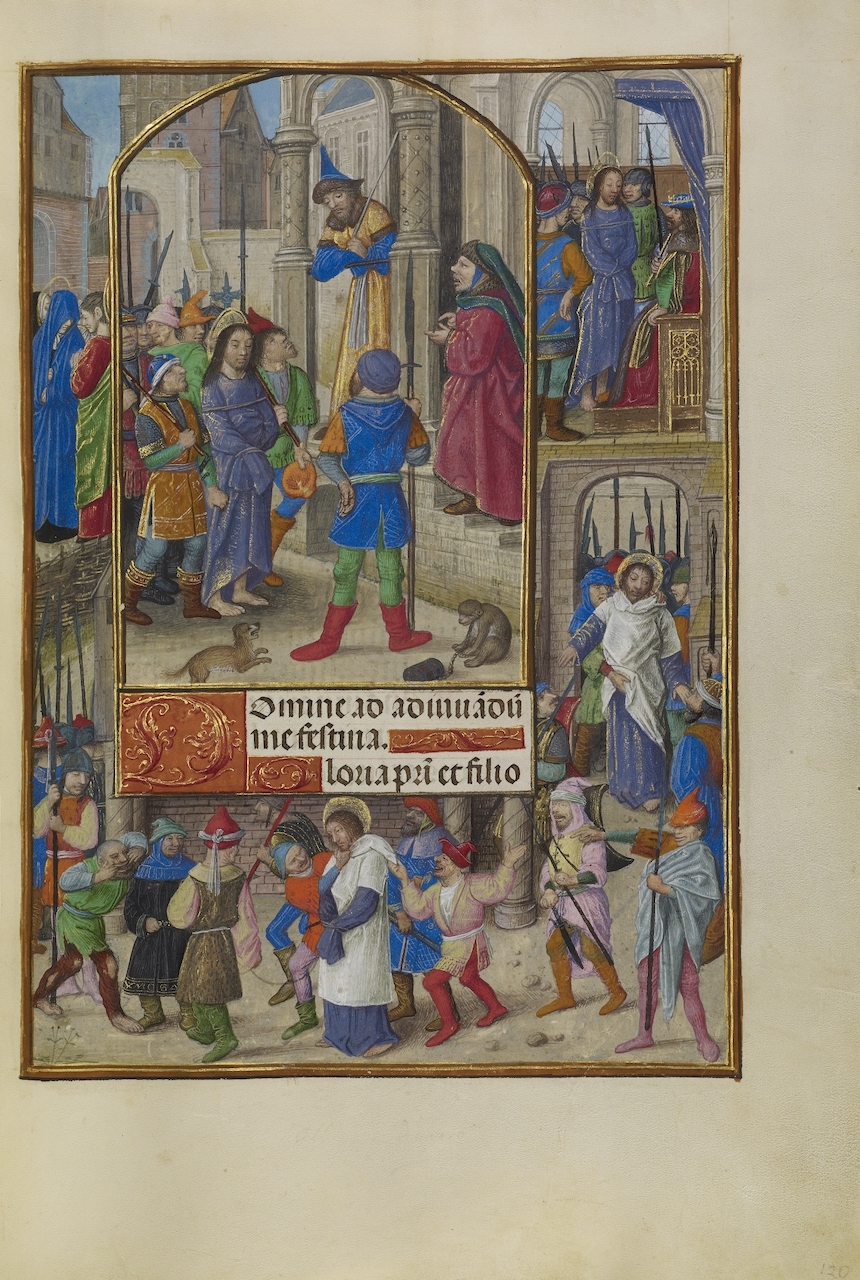 Domine ad adiuuādū
me festina.
Gloria pr̄i et filio
120